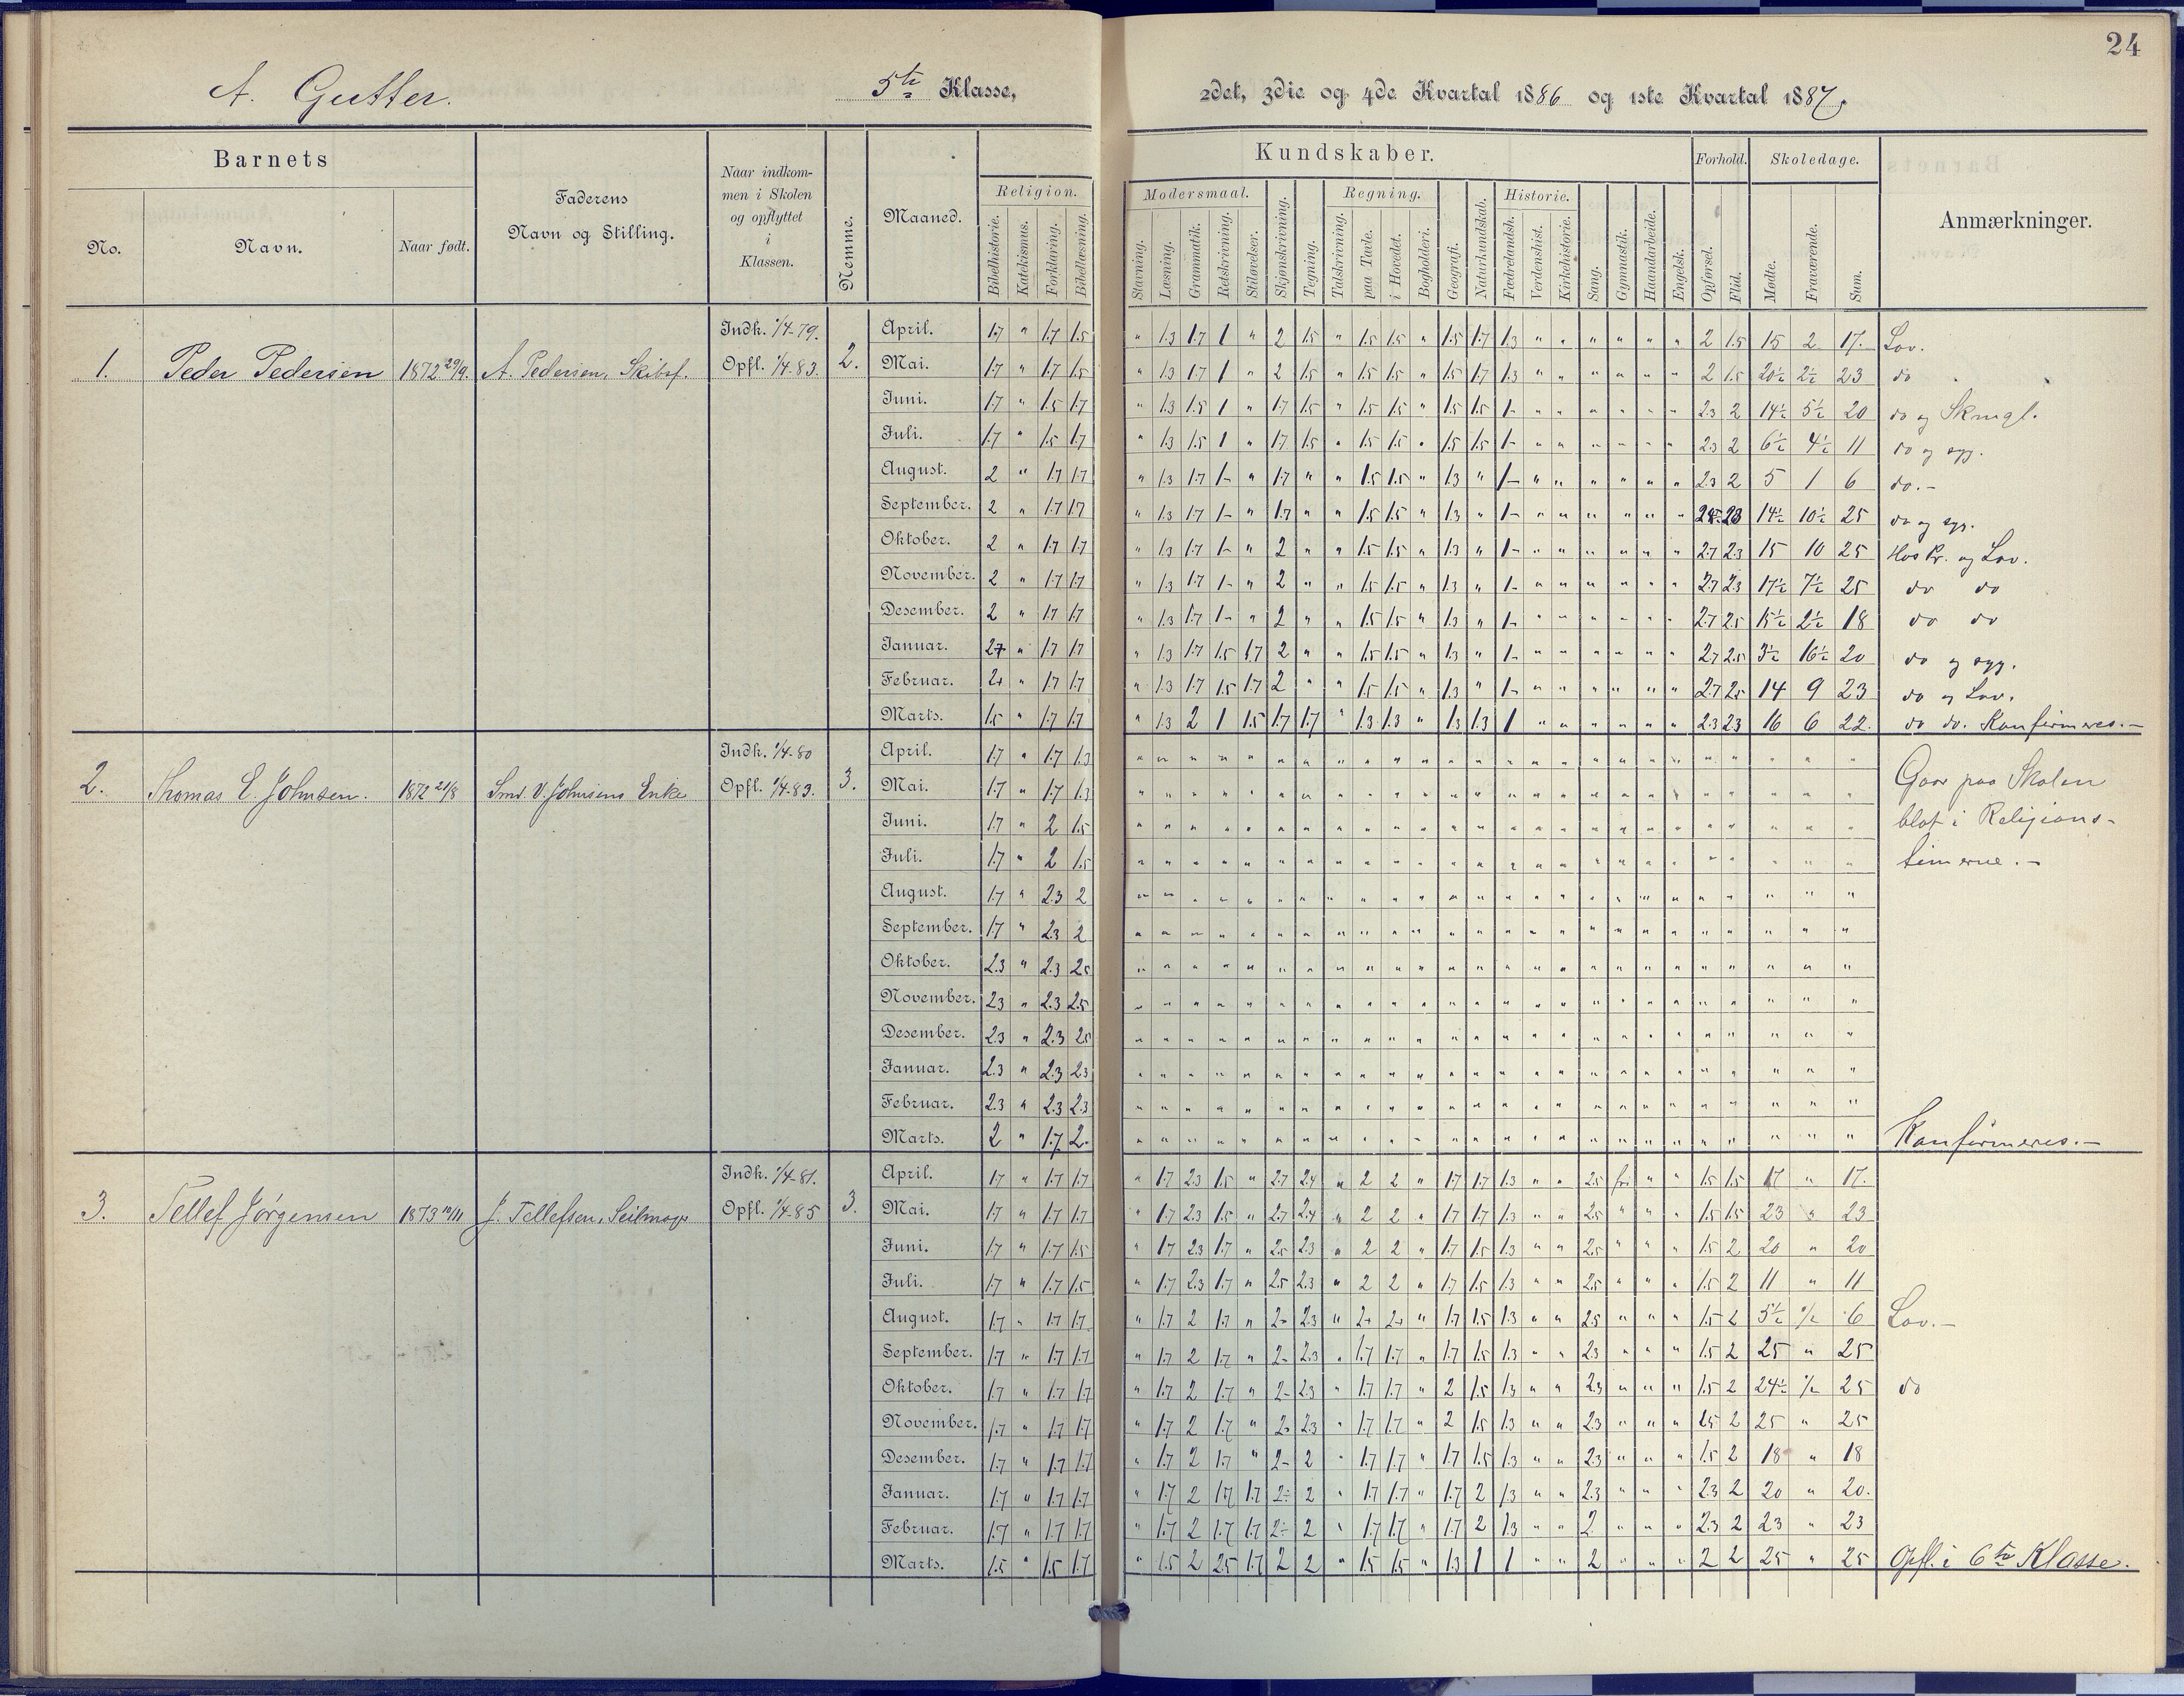 24
A. Gutter. 5te Klasse, 2det, 3die og 4de Kvartal 1886 og 1ste Kvartal 1887.
Barnets
No. Navn. Naar født.
Faderens Navn og Stilling.
Naar indkommen i Skolen og opflyttet i Klassen.
Nemme.
Maaned.
Kundskaber.
Religion.
Bibelhistorie. Katekismus. Forklaring. Bibellæsning.
Modersmaal.
Stavning. Læsning. Grammatik. Retskrivning. Stiløvelser.
Skjønskrivning. Tegning.
Regning.
Talskrivning. paa Tavle. i Hovedet. Bogholderi.
Geografi. Naturkundskab.
Historie.
Fædrelandsh. Verdenshist. Kirkehistorie.
Sang. Gymnastik. Haandarbeide. Engelsk.
Forhold.
Opførsel. Flid.
Skoledage.
Mødte. Fraværende. Sum.
Anmærkninger.
1. Peder Pedersen 1872 29/9. A. Pedersen, Skibsf. Indk. 1/4-79. Opfl. 1/4-83. 2.
April. 1.7 " 1.7 1.5 " 1.3 1.7 1 " 2 1.5 " 1.5 1.5 " 1.5 1.7 1.3 " " " " " " 2 1.5 15 2 17. Lov.
Mai. 1.7 " 1.7 1.5 " 1.3 1.7 1 " 2 1.5 " 1.5 1.5 " 1.5 1.7 1.3 " " " " " " 2 1.5 20½ 2½ 23 do
Juni. 1.7 " 1.5 1.7 " 1.3 1.5 1 " 1.7 1.5 " 1.5 1.5 " 1.5 1.5 1- " " " " " " 2.3 2 14½ 5½ 20 do og
Juli. 1.7 " 1.5 1.7 " 1.3 1.5 1 " 1.7 1.5 " 1.5 1.5 " 1.5 1.5 1- " " " " " " 2.3 2 6½ 4½ 11 do og syg.
August. 2 " 1.7 1.7 " 1.3 1.7 1- " 1.7 " " 1.5 1.5 " 1.3 " 1- " " " " " " 2.3 2 5 1 6 do.-
September. 2 " 1.7 1.7 " 1.3 1.7 1- " 1.7 " " 1.5 1.5 " 1.3 " 1- " " " " " " 2.5 2.3 14½ 10½ 25 do og syg.
Oktober. 2 " 1.7 1.7 " 1.3 1.7 1- " 2 " " 1.5 1.5 " 1.3 " 1- " " " " " " 2.7 2.3 15 10 25 Hos Pr. og Lov.
November. 2 " 1.7 1.7 " 1.3 1.7 1- " 2 " " 1.5 1.5 " 1.3 " 1- " " " " " " 2.7 2.3 17½ 7½ 25 do do
Desember. 2 " 1.7 1.7 " 1.3 1.7 1- " 2 " " 1.5 1.5 " 1.3 " 1- " " " " " " 2.7 2.5 15½ 2½ 18 do do
Januar. 2+ " 1.7 1.7 " 1.3 1.7 1.5 1.7 2 " " 1.5 1.5 " 1.3 " 1- " " " " " " 2.7 2.5 3½ 16½ 20 do og syg.
Februar. 2+ " 1.7 1.7 " 1.3 1.7 1.5 1.7 2 " " 1.5 1.5 " 1.3 " 1- " " " " " " 2.7 2.5 14 9 23 do og Lov.
Marts. 1.5 " 1.7 1.7 " 1.3 2 1 1.5 1.7 1.7 " 1.3 1.3 " 1.3 1.3 1 " " " " " " 2.3 2.3 16 6 22. do do. Konfirmeres.-
2. Thomas E. Johnsen. 1872 21/8 Smd. V. Johnsens Enke Indk. 1/4-80 Opfl. 1/4-83. 3.
April. 1.7 " 1.7 1.3
Mai. 1.7 " 1.7 1.3 Gaar paa Skolen
Juni. 1.7 " 2 1.5 blot i Religions-
Juli. 1.7 " 2 1.5 timerne.-
August. 1.7 " 2.3 2
September. 1.7 " 2.3 2
Oktober. 2.3 " 2.3 2.5
November. 2.3 " 2.3 2.5
Desember. 2.3 " 2.3 2.5
Januar. 2.3 " 2.3 2.3
Februar. 2.3 " 2.3 2.3
Marts. 2 " 1.7 2. Konfirmeres.-
3. Tellef Jørgensen 1873 10/11 J. Tellefsen, Seilmager Indk. 1/4-81. Opfl. 1/4-85 3.
April. 1.7 " 1.7 1.7 " 1.7 2.3 1.5 " 2.7 2.4 " 2 2 " 1.7 1.7 1.3 " " 2.5 fri " " 1.5 1.5 17 " 17.
Mai. 1.7 " 1.7 1.7 " 1.7 2.3 1.5 " 2.7 2.4 " 2 2 " 1.7 1.7 1.3 " " 2.5 " " " 1.5 1.5 23 " 23
Juni. 1.7 " 1.7 1.5 " 1.7 2.3 1.7 " 2.5 2.3 " 2 2 " 1.7 1.5 1.3 " " 2.5 " " " 1.5 2 20 " 20
Juli. 1.7 " 1.7 1.5 " 1.7 2.3 1.7 " 2.5 2.3 " 2 2 " 1.7 1.5 1.3 " " 2.5 " " " 1.5 2 11 " 11
August. 1.7 " 1.7 1.7 " 1.7 2 1.7 " 2- 2.3 " 2+ 2+ " 1.7 1.5 1.3 " " 2.5 " " " 1.5 2 5½ ½ 6 Lov.-
September. 1.7 " 1.7 1.7 " 1.7 2 1.7 " 2- 2.3 " 1.7 1.7 " 1.7 1.5 1.3 " " 2.3 " " " 1.5 2 25 " 25
Oktober. 1.7 " 1.7 1.7 " 1.7 2 1.7 " 2- 2.3 " 1.7 1.7 " 2 1.5 1.3 " " 2.3 " " " 1.5 2 24½ ½ 25 do
November. 1.7 " 1.7 1.7 " 1.7 2 1.7 " 2- 2.3 " 1.7 1.7 " 2 1.5 1.3 " " 2.3 " " " 1.5 2 25 " 25
Desember. 1.7 " 1.7 1.7 " 1.7 2 1.7 " 2- 2 " 1.7 1.7 " 1.7 1.5 1.3 " " 2.3 " " " 1.5 2 18 " 18
Januar. 1.7 " 1.7 1.7 " 1.7 2 1.7 1.7 2- 2 " 1.7 1.7 " 1.7 2 1.3 " " 2.3 " " " 2.3 2 20 " 20.
Februar. 1.7 " 1.7 1.7 " 1.7 2 1.7 1.7 2- 2 " 1.7 1.7 " 1.7 2 1.3 " " 2 " " " 2.3 2 23 " 23
Marts. 1.5 " 1.5 1.7 " 1.5 2 2.5 1.7 2 2 " 1.5 1.5 " 1.3 1 1 " " 2 " " " 2 2 25 " 25 Opfl. i 6te Klasse.